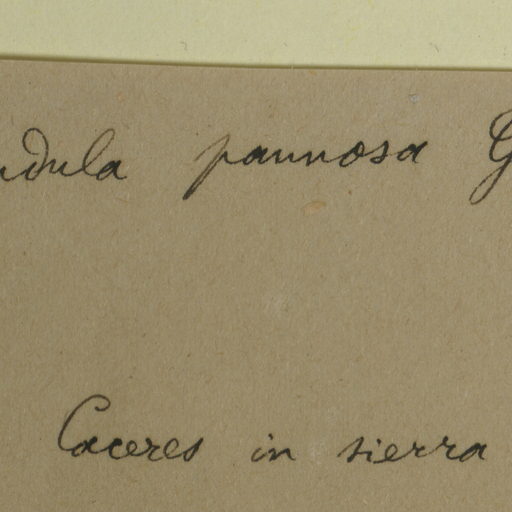 ndula pannosa G
Caceres in sierra